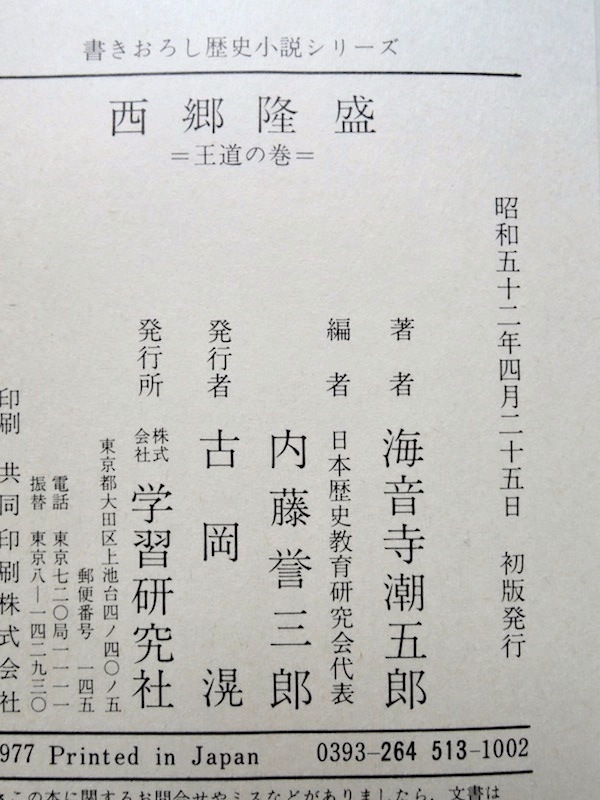 書きおろし歴史小説シリーズ
西郷隆盛
=王道の巻=
昭和五十二年四月二十五日 初版発行
著者 海音寺潮五郎
編者 日本歴史教育研究会代表
内藤誉三郎
発行者 古岡 滉
発行所 株式会社 学習研究社
東京都大田区上池台四ノ四〇ノ五
郵便番号 一四五
電話 東京七二〇局一一一一
振替 東京八―一四二九三〇
印刷 共同印刷株式会社
977 Printed in Japan 0393-264 513-1002
この本に関するお問合せやミスなどがありましたら，文書は